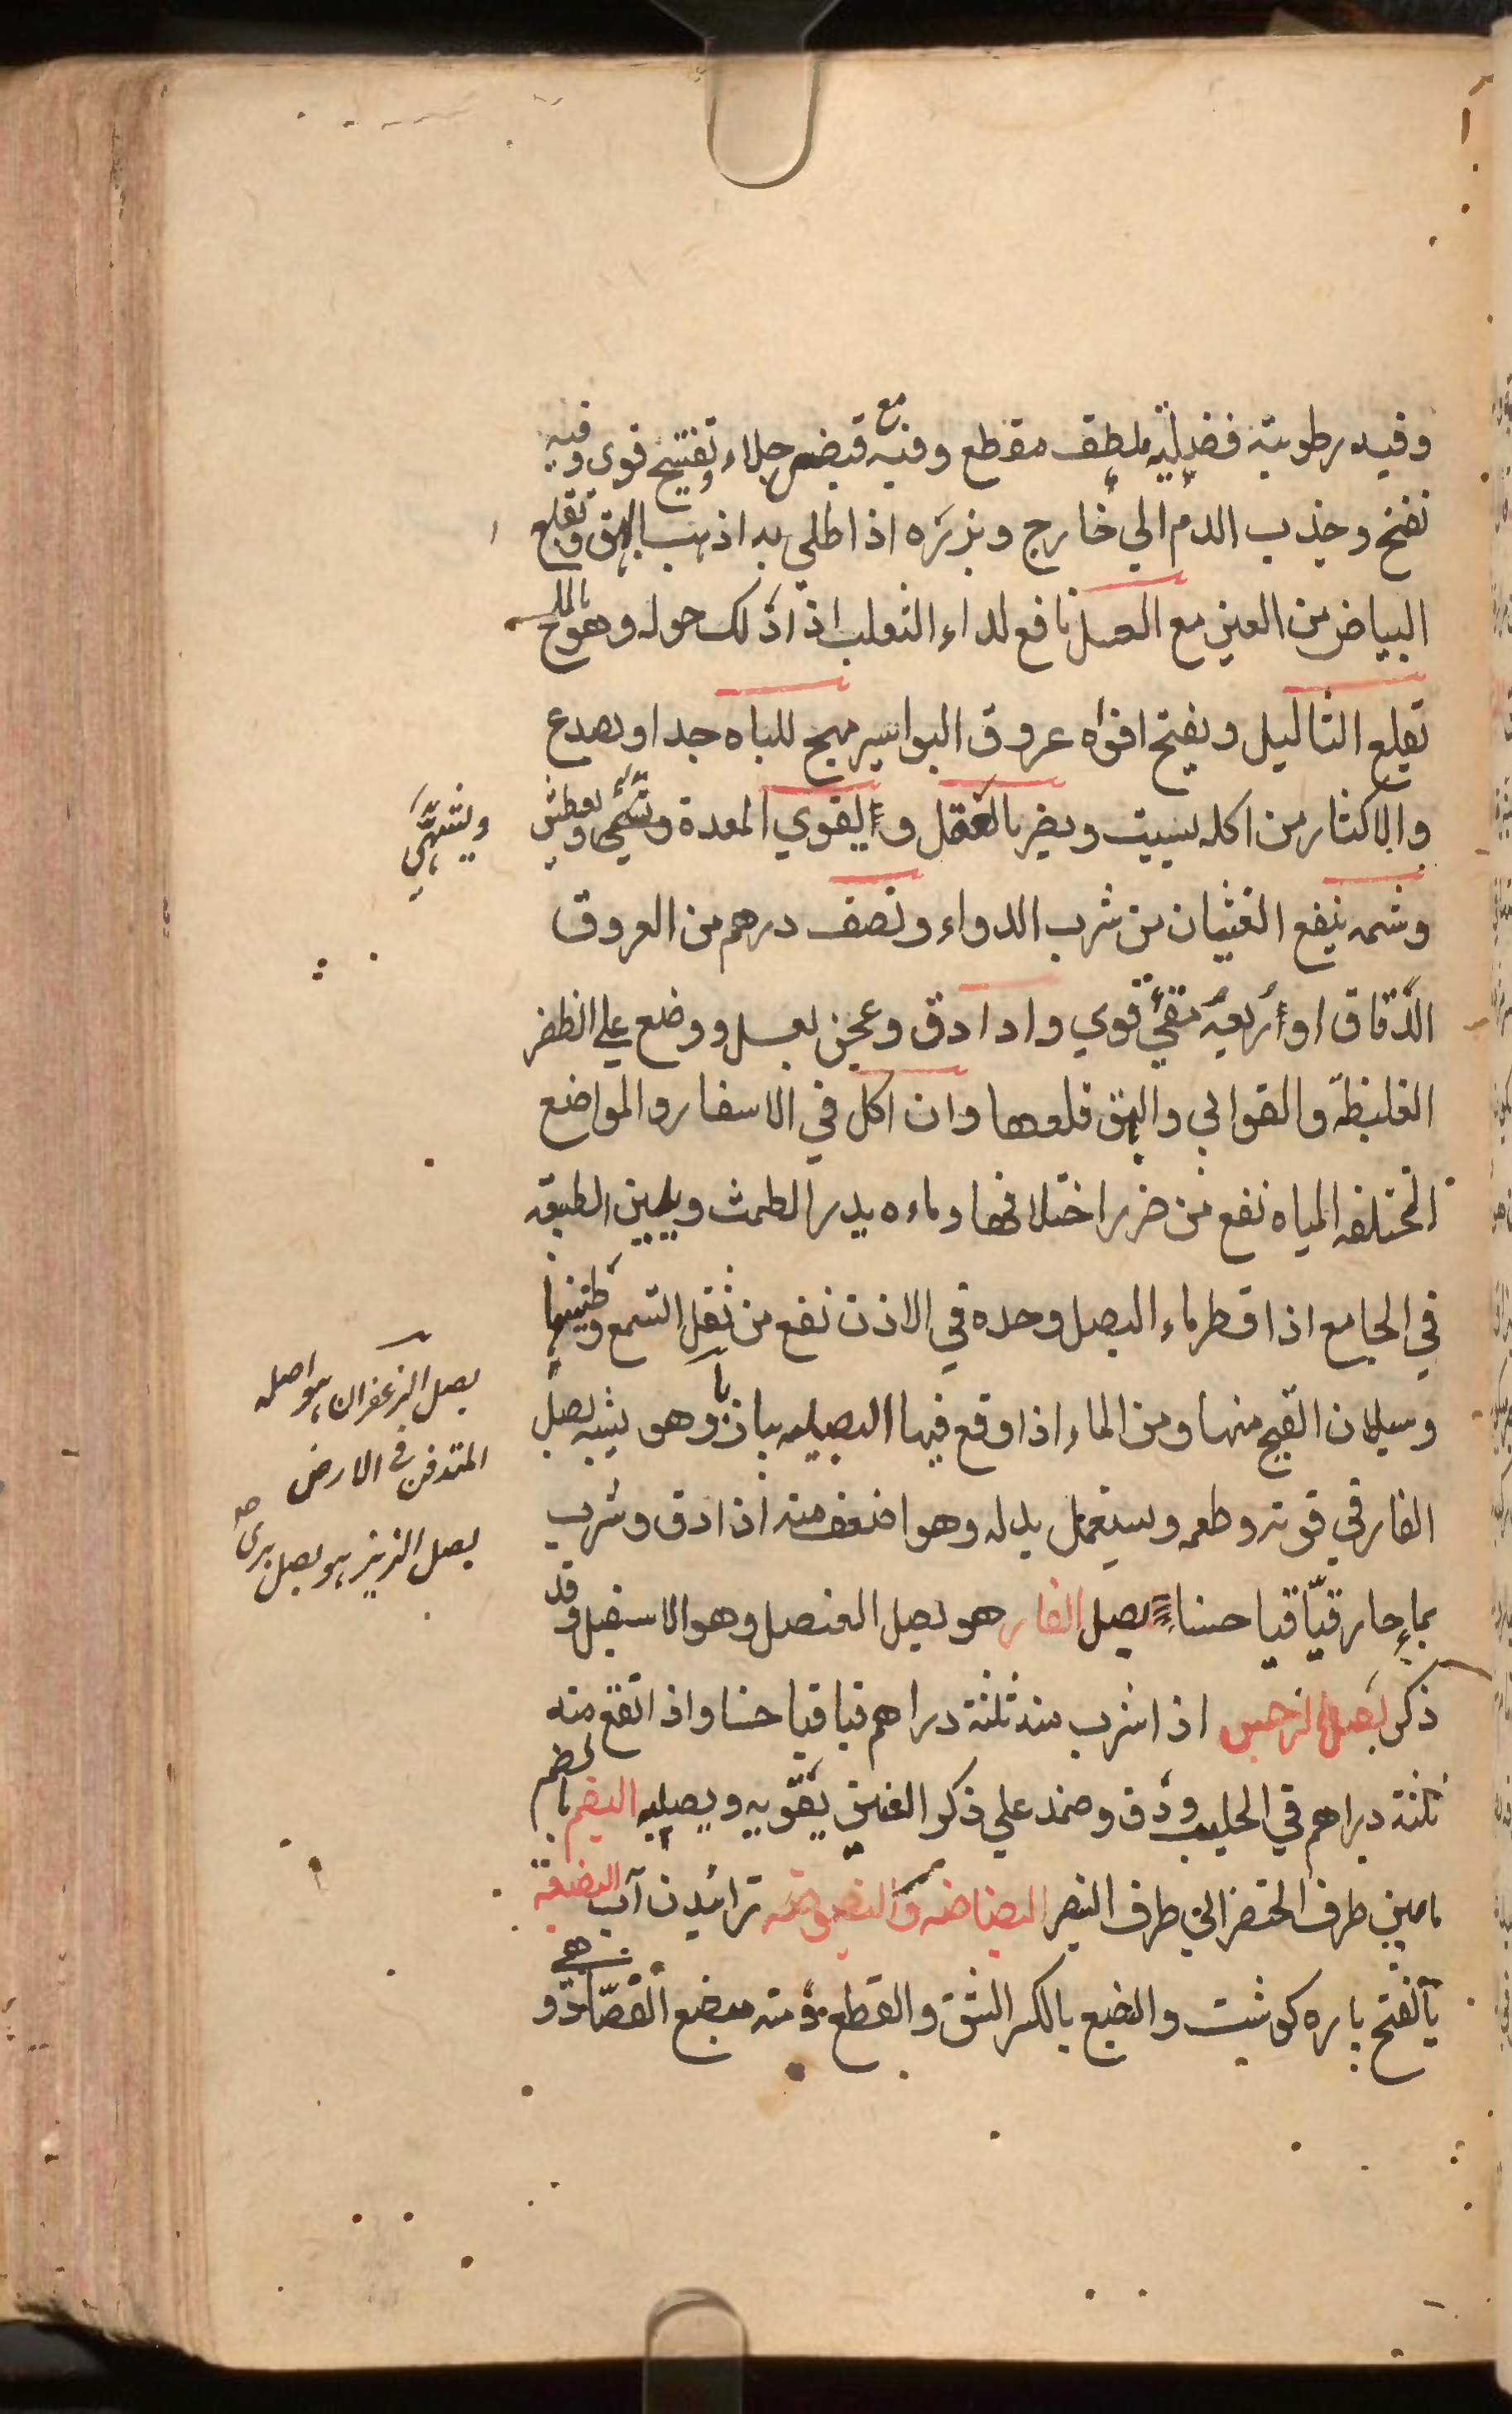 وفيه رطوبة فضلية ملطف مقطع وفيه مع قبض جلاء وتفتيح قوي وفيه
نفخ وجذب الدم الي خارج وبزره اذا طلي به اذهب البهق وتقلع
البياض من العين مع العسل نافع لداء الثعلب اذا دلك حوله وهو بالملح
تقلع الثاليل ويفتح افواه عروق البواسير مهيج للباه جدا ويصدع
والاكثار من اكله يسبت ويضر بالعقل و يقوي المعدة ويعطش
ويشهي
وشمه ينفع الغثيان من شرب الدواء ونصف درهم من العروق
الدقاق او اربعة مقيئ قوي واذا دق وعجن بعسل ووضع علي الظفر
الغليظة والقوابي والبهق قلعها وان اكل في الاسفار والمواضع
المختلفه المياه نفع من ضرر اختلافها وماءه يدر الطمث ويلين الطبيعه
في الجامع اذا قطر ماء البصل وحده في الاذن نفع من ثقل السمع وطنينها
وسيلان القيح منها ومن الماء اذا وقع فيها البصيله وهو يشبه بصل
الفار في قوته وطعمه ويستعمل بدله وهو اضعف منه اذا دق وشرب
بماء حار قيأ قيا حسنا بصل الفار هو بصل العنصل وهو الاسقيل وقد
ذكر بصل النرجس اذا شرب منه ثلثة دراهم قيا قيا حسنا واذا انقع منه
ثلثة دراهم في الحليب ودق وضمد علي ذكر العنين يقويه ويصلبه البصم بالضم
مابين طرف الخنصر الي طرف البنصر البضاضه والبضوضه تراييدن آب البضعة
بالفتح پاره كوشت والبضع بالكسر الشق والقطع ومنه مبضع الفصاد و هي
بصل الزعفران هو اصله
المتدفن في الارض
بصل الزيز هو بصل بري